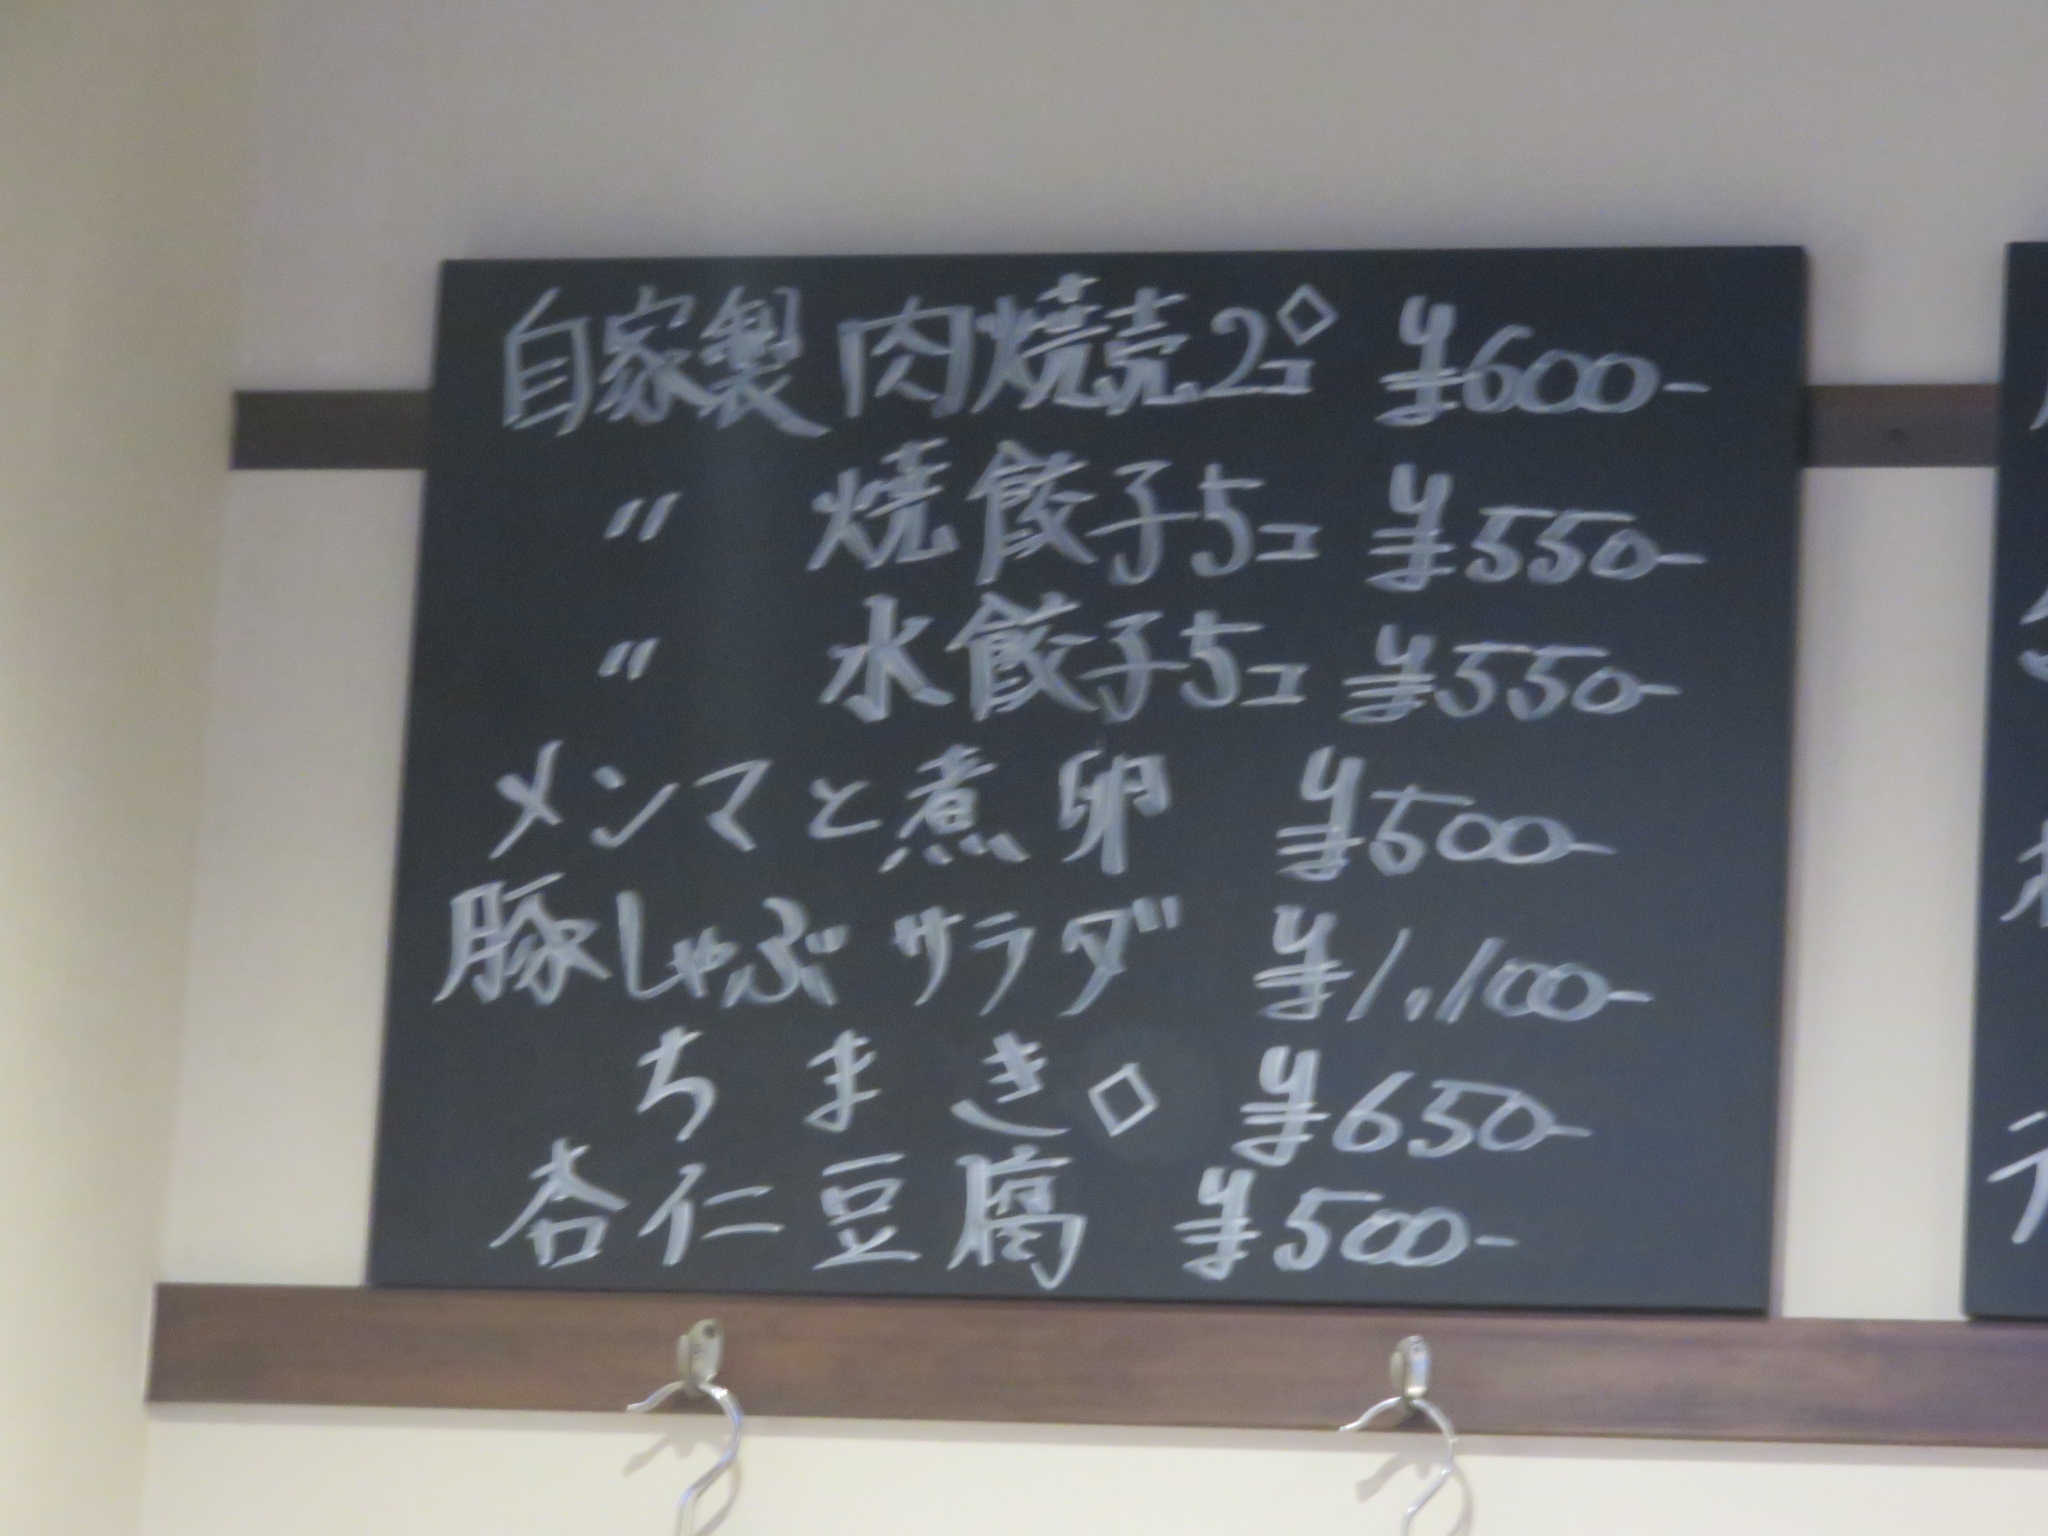 自家製 肉焼売2コ◇ ¥600-
〃 焼餃子5コ ¥550-
〃 水餃子5コ ¥550-
メンマと煮卵 ¥500-
豚しゃぶサラダ ¥1,100-
ちまき◇ ¥650-
杏仁豆腐 ¥500-